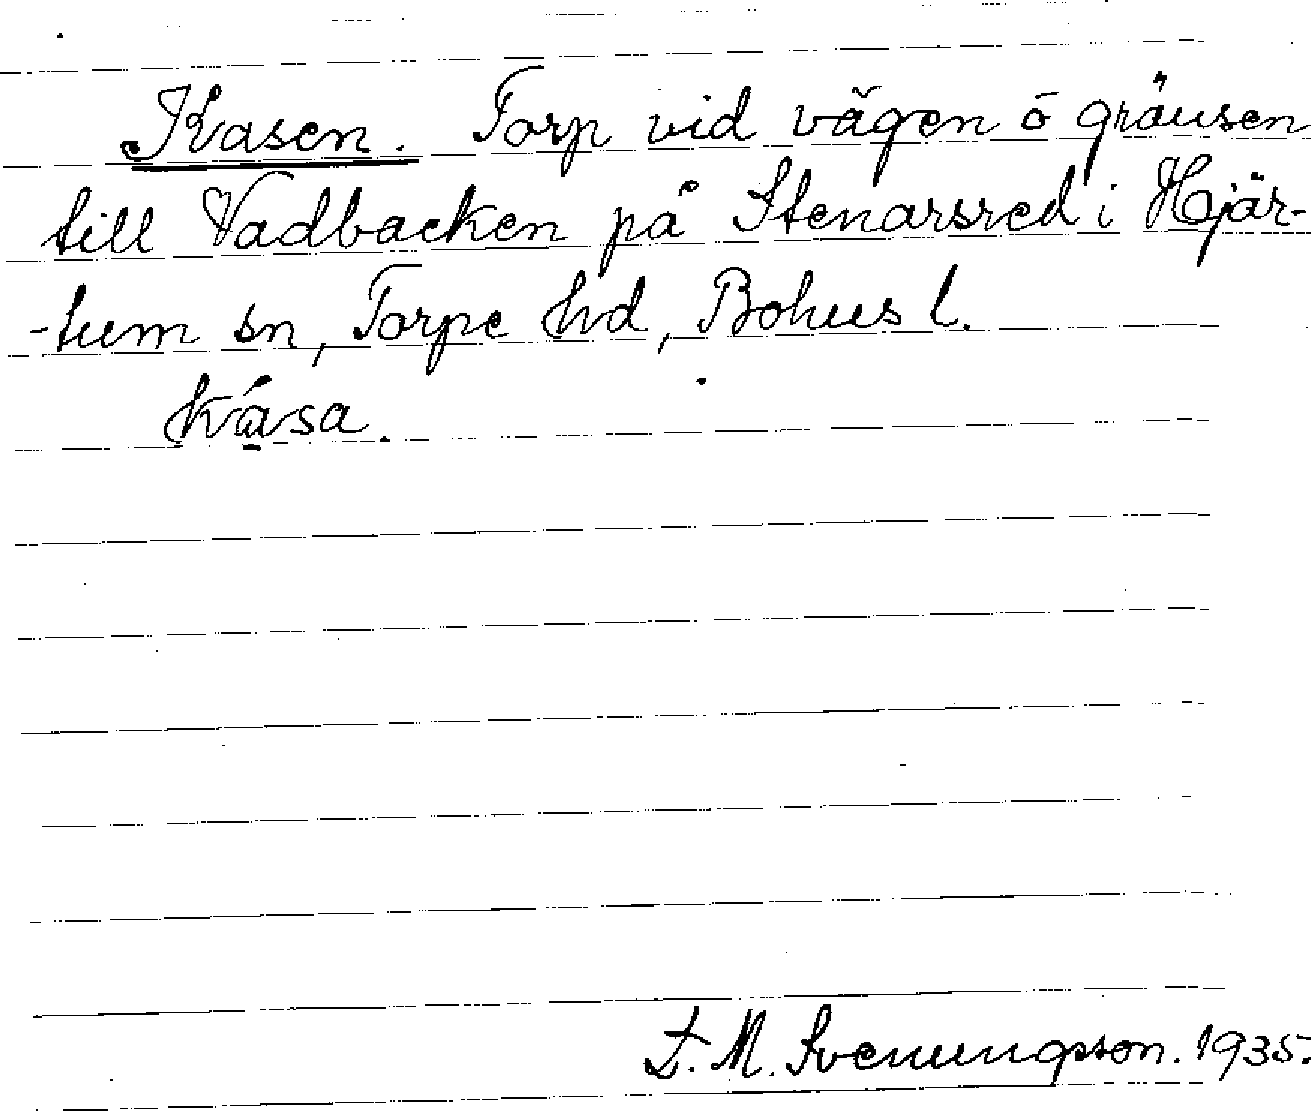 Kasen. Torp vid vägen ö gränsen
till Vadbacken på Stenarsred i Hjär-
-tum sn, Torpe hd, Bohus l.
Kása.
D. M. Svenungsson. 1935.